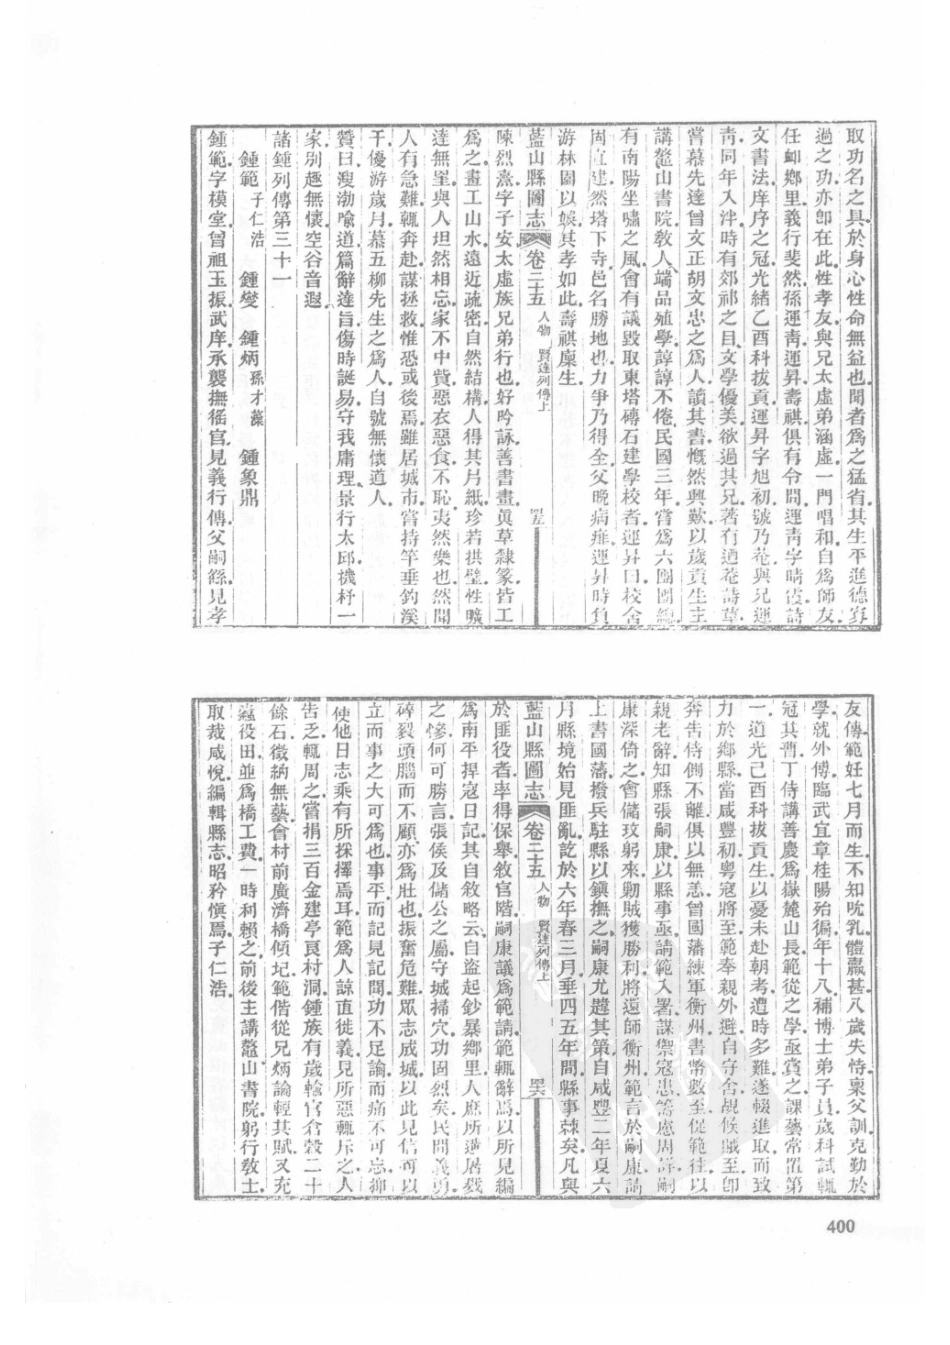 取功名之具於身心性命無益也聞者爲之猛省其生平進德寡
過之功亦卽在此性孝友與兄太虛弟涵虛一門唱和自爲師友
任卹鄉里義行斐然孫運靑運昇壽祺俱有令問運靑字晴霞詩
文書法庠序之冠光緒乙酉科拔貢運昇字旭初號乃菴與兄運
靑同年入泮時有郊祁之目文學優美欲過其兄著有迺菴詩草
嘗慕先達曾文正胡文忠之爲人讀其書慨然興歎以歲貢生主
講鼇山書院敎人端品殖學諄諄不倦民國三年嘗爲六團團總
有南陽坐嘯之風會有議毀取東塔磚石建學校者運昇曰校舍
固宜建然塔下寺邑名勝地也力爭乃得全父晚病痺運昇時負
游林園以娛其孝如此壽祺廩生
藍山縣圖志 卷二十五 人物 賢達列傳上
陳烈熹字子安太虛族兄弟行也好吟詠善書畫眞草隸篆皆工
爲之畫工山水遠近疏密自然結構人得其片紙珍若拱璧性曠
達無崖與人坦然相忘家不中貲惡衣惡食不恥夷然樂也然聞
人有急難輒奔赴謀拯救惟恐或後焉雖居城市嘗持竿垂釣溪
干優游歲月慕五柳先生之爲人自號無懷道人
贊曰溲渤喩道篇辭達旨傷時誕易守我庸理景行太邱機杼一
家別趣無懷空谷音遐
諸鍾列傳第三十一
鍾範 子仁浩 鍾燮 鍾炳 孫才藻 鍾象鼎
鍾範字模堂曾祖玉振武庠承襲撫徭官見義行傳父嗣鯀見孝
友傳範妊七月而生不知吮乳體羸甚八歲失恃稟父訓克勤於
學就外傅臨武宜章桂陽殆徧年十八補博士弟子員歲科試輒
冠其曹丁侍講善慶爲嶽麓山長範從之學亟賞之課藝常置第
一道光己酉科拔貢生以憂未赴朝考遭時多難遂輟進取而致
力於鄉縣當咸豐初粵寇將至範奉親外避自守舍覘候賊至卽
奔告侍側不離俱以無恙曾國藩練軍衡州書幣數至促範往以
親老辭知縣張嗣康以縣事亟請範入署謀禦寇忠籌慮周詳嗣
康深倚之會儲玟躬來勦賊獲勝利將還師衡州範言於嗣康請
上書國藩撥兵駐縣以鎭撫之嗣康尤韙其策自咸豐二年夏六
月縣境始見匪亂訖於六年春三月垂四五年間縣事棘矣凡與
藍山縣圖志 卷二十五 人物 賢達列傳上 四六
於匪役者率得保舉敘官階嗣康議爲範請範輒辭焉以所見編
爲南平捍寇日記其自敘略云自盜起鈔暴鄉里人庶所遊居戮
之慘何可勝言張侯及儲公之屬守城掃穴功固烈矣民間義勇
碎裂頭腦而不顧亦爲壯也振奮危難眾志成城以此見信可以
立而事之大可爲也事平而記見記聞功不足諭而痛不可忘抑
使他日志乘有所採擇焉耳範爲人諒直徙義見所惡輒斥之人
告乏輒周之嘗捐三百金建亭艮村洞鍾族有歲輸官倉穀二十
餘石徵納無藝會村前廣濟橋傾圮範偕從兄炳論輕其賦又充
蠧役田並爲橋工費一時利賴之前後主講鼇山書院躬行敎士
取裁咸悅編輯縣志昭矜愼焉子仁浩
400